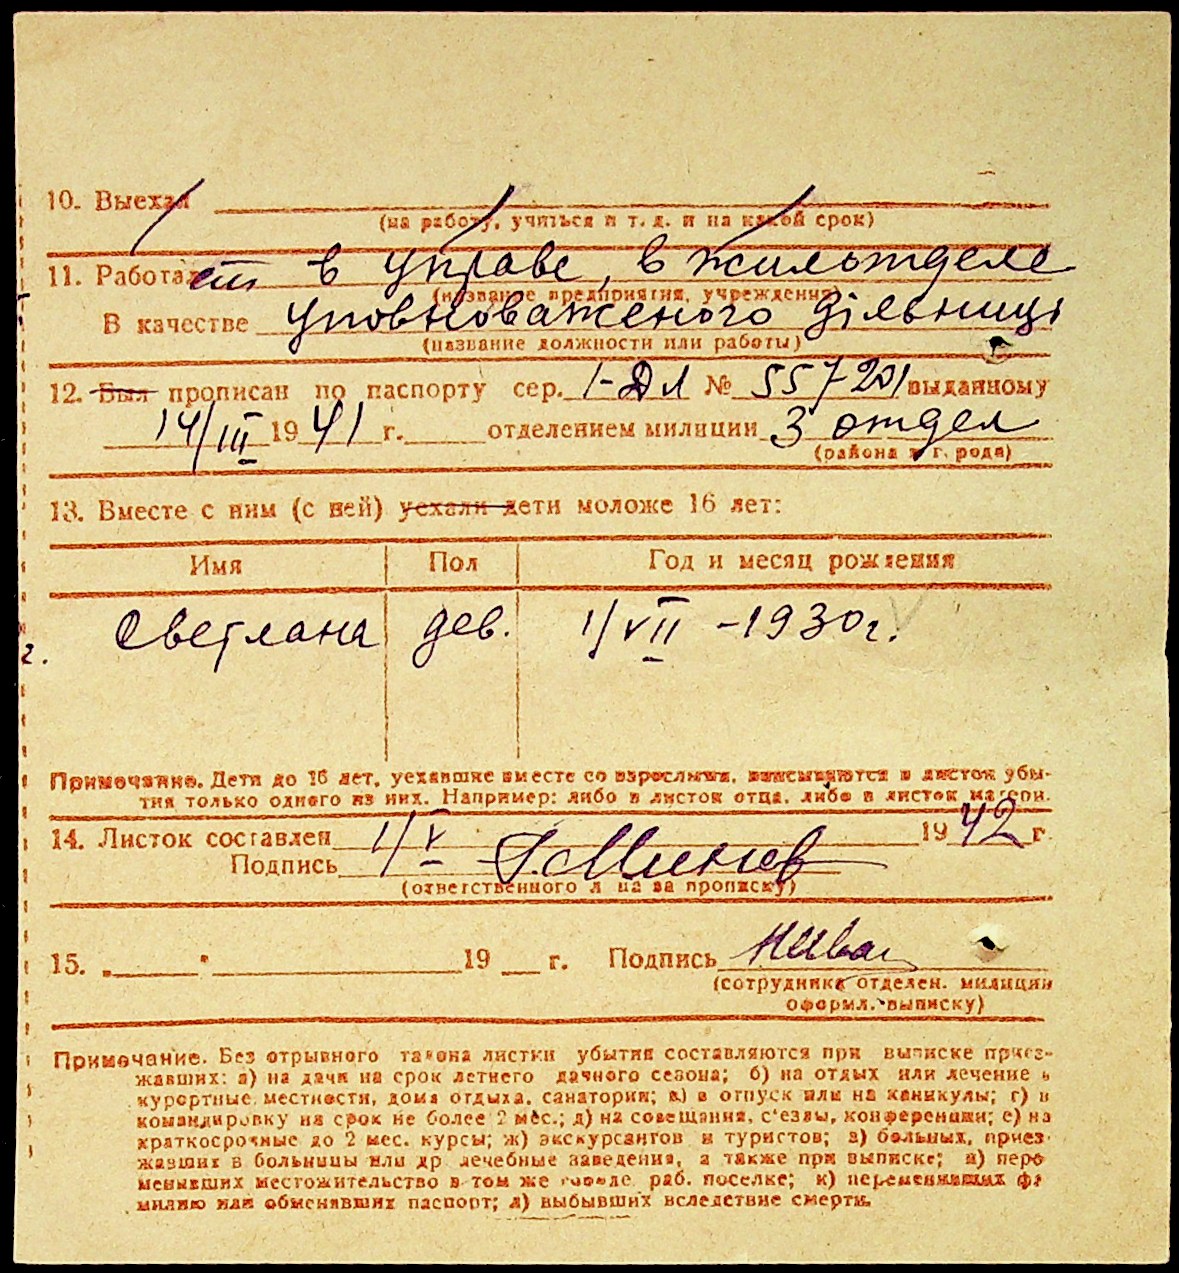 10. Выехал
(на работу, учиться и т. д. и на какой срок)
11. Работает в управе, в жилотделе
(название предприятия, учреждения)
В качестве уповноваженого дільниці
(название должности или работы)
12. Был прописан по паспорту сер. I-ДЛ № 557201 выданному
14/III 1941 г. отделением милиции 3 отдел
(района и г. рода)
13. Вместе с ним (с ней) уехали дети моложе 16 лет:
Имя Пол Год и месяц рождения
Светлана дев. 1/VII -1930г.
г.
Примечание. Дети до 16 лет, уехавшие вместе со взрослыми, вписываются в листок убы-
тия только одного из них. Например: либо в листок отца, либо в листок матери.
14. Листок составлен 1/V 1942 г.
Подпись
(ответственного л ца за прописку)
15. „ " 19 г. Подпись
(сотрудника отделен. милиции
оформл. выписку)
Примечание. Без отрывного талона листки убытия составляются при выписке приез-
жавших: а) на дачи на срок летнего дачного сезона; б) на отдых или лечение в
курортные местности, дома отдыха, санатории; в) в отпуск или на каникулы; г) в
командировку на срок не более 2 мес.; д) на совещания, с'езды, конференции; е) на
краткосрочные до 2 мес. курсы; ж) экскурсантов и туристов; з) больных, приез-
жавших в больницы или др лечебные заведения, а также при выписке; и) пере
менивших местожительство в том же городе раб. поселке; к) переменивших фа
милию или обменявших паспорт; л) выбывших вследствие смерти.